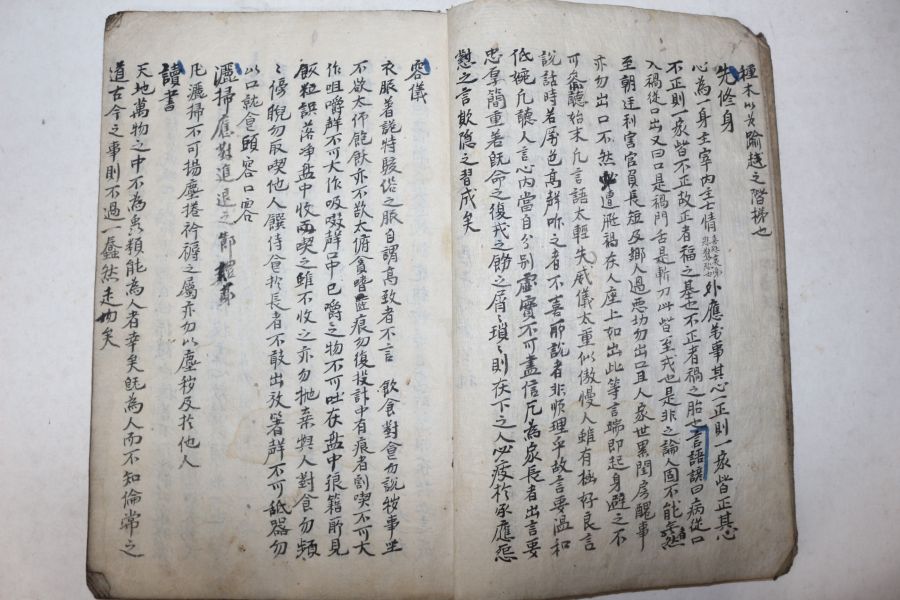 種木以爲踰越之階梯也
先修身
心為一身主宰內主七情喜怒哀樂愛惡欲外應萬事其心一正則一家皆正其心
不正則一家皆不正故正者福之基也不正者禍之胎也言語謨曰病從口
入禍從口出又曰口是禍門舌是斬刀此皆至戒也是非之論人固不能無然
至朝廷利害官員長短及鄕人過惡切勿出口且人家世累閨房醜事
亦勿出口不然必遭飛禍在人座上如出此等言端即起身避之不
可參聽始末凡言語太輕失威儀太重似傲慢人雖有極好良言
說話時若厲色高聲咻之者不喜聞說者非順理乎故言要溫和
低婉凡聽人言心內當自分別虛實不可盡信凡為家長者出言要
忠厚簡重若旣命之復戒之飭之屑屑瑣瑣則在下之人必疲於承應怨
懟之言欺隱之習成矣
容儀
衣服着詭特駭俗之服自謂高致者不言 飮食對食勿說牧事坐
不欲太仰飽飫亦不欲太俯貪嗜 痕勿復投 中有痕者割喫不可大
作咀嚼聲不可大作吸啜聲口中已嚼之物不可吐在盤中狼籍所見
飯粒誤落淨盤中收而喫之雖不收之亦勿抛棄與人對食勿頻
頻傍睨勿取喫他人饌侍食於長者不敢出放箸聲不可舐器勿
以口就食頭容口容
灑掃應對進退之節
凡灑掃不可揚塵捲衿褥之屬亦勿以塵秽及於他人
讀書
天地萬物之中不為禽類能為人者幸矣旣為人而不知倫常之
道古今之事則不過一蠢然走肉矣